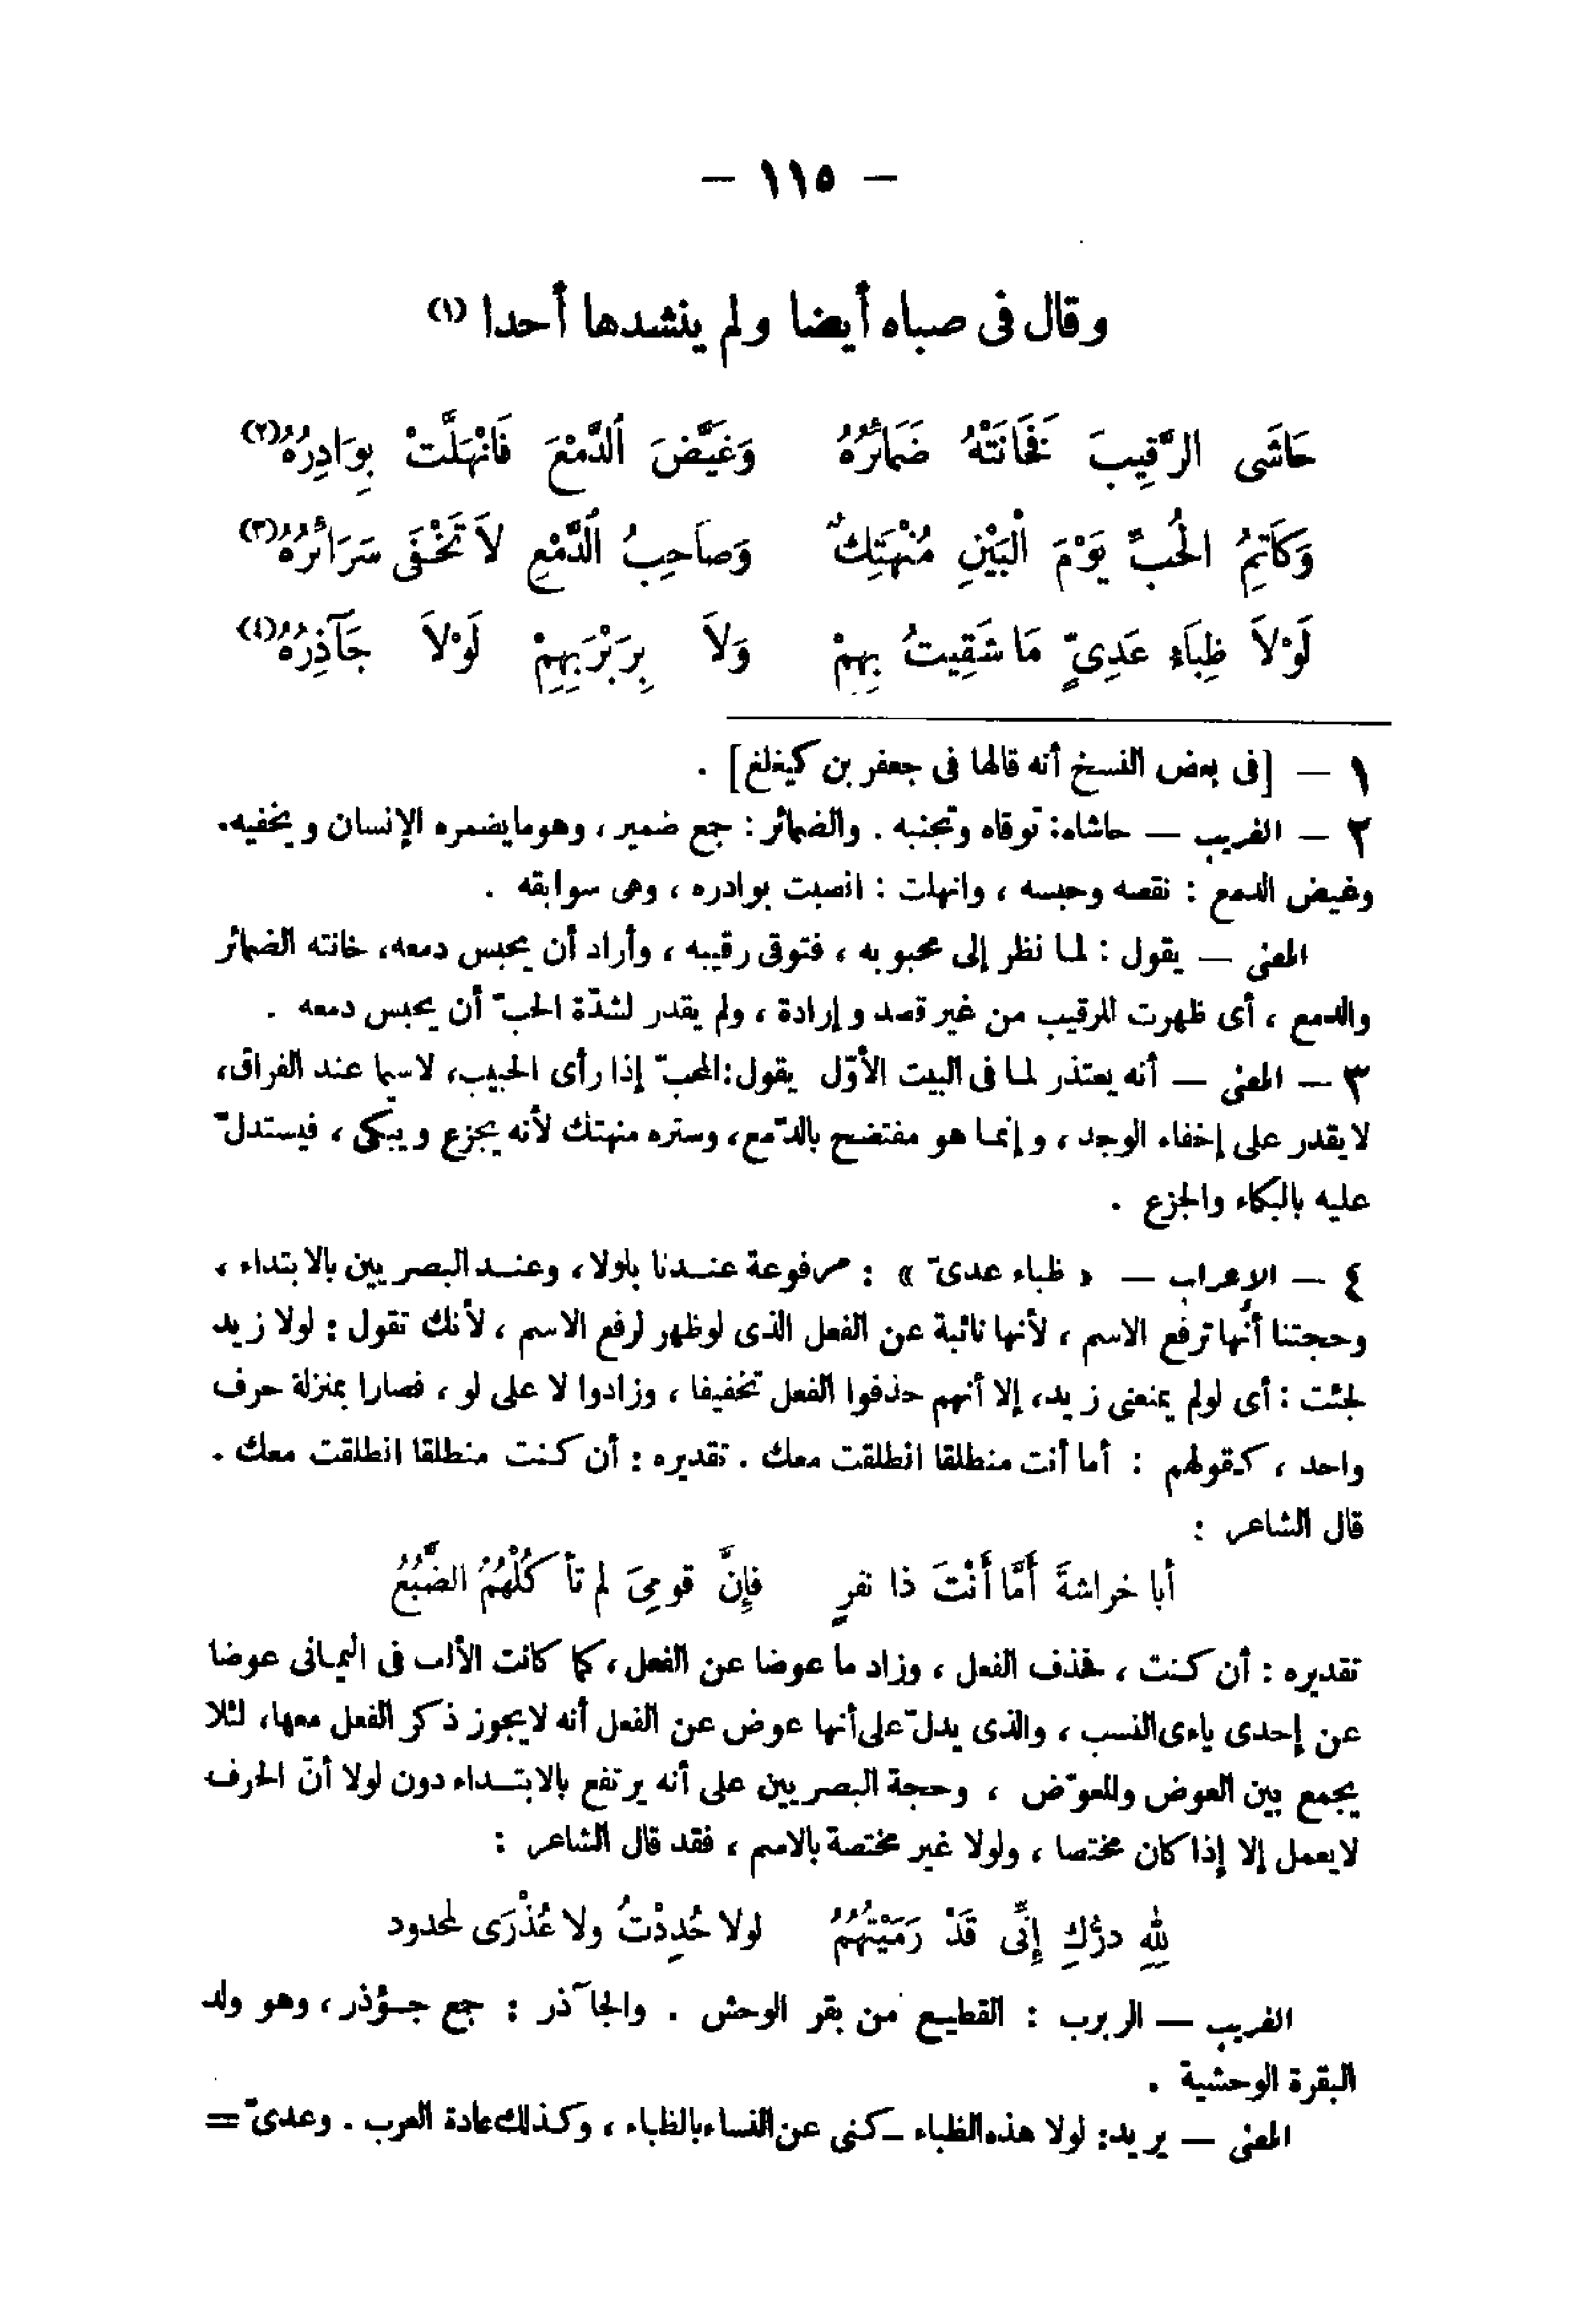 — ١١٥ —
وقال فى صباه أيضا ولم ينشدها أحدا (١)
حَاشَى الرَّقِيبَ فَخَانَتْهُ ضَمَائرُهُ وَغَيَّضَ الدَّمْعَ فَانْهَلَّتْ بِوَادِرُهُ (٢)
وَكَاتِمُ الْحُبِّ يَوْمَ الْبَيْنِ مُنْهَتِكٌ وَصاَحِبُ الدَّمْعِ لاَ تَخْفَى سَرَائرُهُ (٣)
لَوْلاَ ظِبَاءِ عَدِىٍّ مَا شَقِيتُ بِهِمْ وَلاَ بِرَبْرَبِهِمْ لَوْلاَ جَآذِرُهُ (٤)
١ — [فى بعض النسخ أنه قالها فى جعفر بن كيغلغ] .
٢ — الغريب — حاشاه: توقاه وتجنبه . والضمائر : جمع ضمير ، وهو ما يضمره الإنسان ويخفيه.
وغيض الدمع : نقصه وحبسه ، وانهلت : انصبت بوادره ، وهى سوابقه .
المعنى — يقول : لما نظر إلى محبوبه ، فتوقى رقيبه ، وأراد أن يحبس دمعه، خانته الضمائر
والدمع ، أى ظهرت للرقيب من غير قصد وإرادة ، ولم يقدر لشدّة الحبّ أن يحبس دمعه .
٣ — المعنى — أنه يعتذر لما فى البيت الأوّل يقول: المحبّ إذا رأى الحبيب، لاسيما عند الفراق،
لايقدر على إخفاء الوجد ، وإنما هو مفتضح بالدّمع، وستره منهتك لأنه يجزع ويبكى ، فيستدلّ
عليه بالبكاء والجزع .
٤ — الإعراب — « ظباء عدىّ » : مرفوعة عندنا بلولا، وعند البصريين بالابتداء ،
وحجتنا أنها ترفع الاسم ، لأنها نائبة عن الفعل الذى لوظهر لرفع الاسم ، لأنك تقول : لولا زيد
لجئت : أى لولم يمنعنى زيد، إلا أنهم حذفوا الفعل تخفيفا ، وزادوا لا على لو ، فصارا بمنزلة حرف
واحد ، كقولهم : أما أنت منطلقا انطلقت معك . تقديره : أن كنت منطلقا انطلقت معك .
قال الشاعر :
أبا خراشةَ أَمَّا أَنْتَ ذا نفرٍ فإِنَّ قومِىَ لم تأ كُلْهُمُ الضَّبُعُ
تقديره : أن كنت ، فحذف الفعل ، وزاد ما عوضا عن الفعل ، كما كانت الألف فى اليمانى عوضا
عن إحدى ياءى النسب ، والذى يدلّ على أنها عوض عن الفعل أنه لايجوز ذكر الفعل معها، لئلا
يجمع بين العوض والمعوّض ، وحجة البصريين على أنه يرتفع بالابتداء دون لولا أنّ الحرف
لايعمل إلا إذا كان مختصا ، ولولا غير مختصة بالاسم ، فقد قال الشاعر :
للهِ درُّكِ إِنِّى قَدْ رَمَيْتُهُمُ لولا حُدِدْتُ ولا عُذْرَى لمحدود
الغريب — الربرب : القطيع من بقر الوحش . والجآذر : جمع جؤذر ، وهو ولد
البقرة الوحشية .
المعنى — يريد: لولا هذه الظباء — كنى عن النساء بالظباء ، وكذلك عادة العرب . وعدىّ =